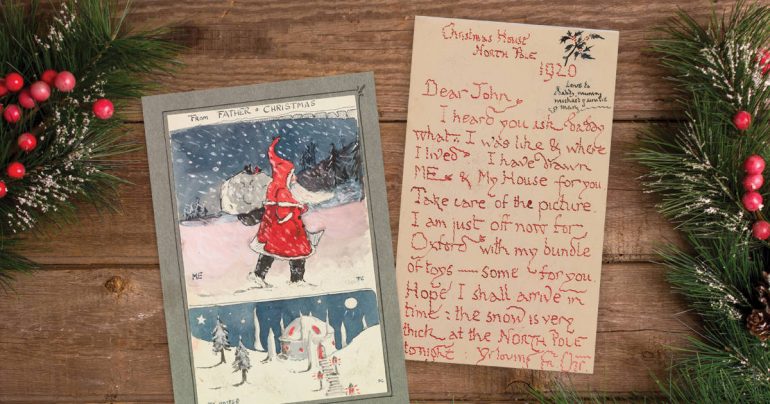 From FATHER CHRISTMAS
ME
FC
MY HOUSE
FC
Christmas House
NORTH POLE
1920
Love to
daddy, mummy
michael & auntie
mary
Dear John,
I heard you ask daddy
what I was like & where
I lived I have drawn
ME & My House for you
Take care of the picture
I am just off now for
Oxford with my bundle
of toys — some for you.
Hope I shall arrive in
time : the snow is very
thick at the NORTH POLE
tonight Yr loving Fr Chr.